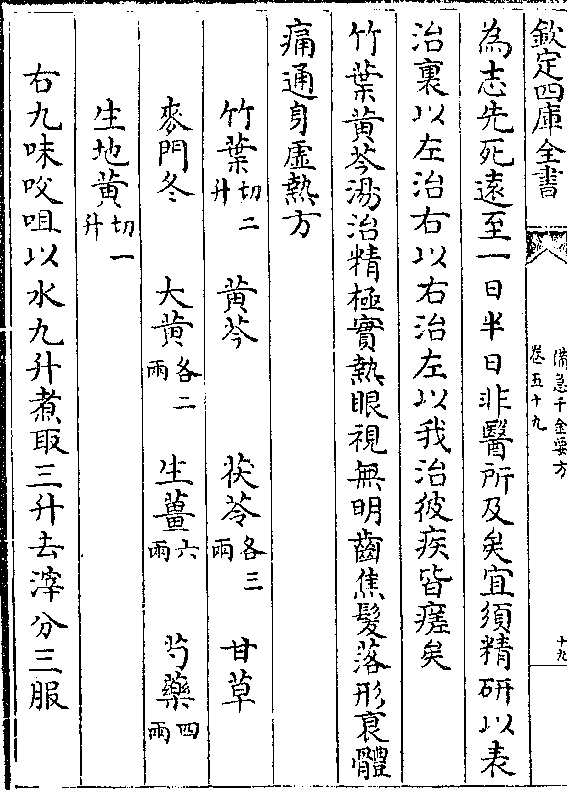 欽定四庫全書
備急千金要方
卷五十九
十九
為志先死遠至一日半日非醫所及矣宜須精研以表
治裏以左治右以右治左以我治彼疾皆瘥矣
竹葉黃芩湯治精極實熱眼視無明齒焦髮落形衰體
痛通身虛熱方
竹葉切二升 黃芩 茯苓各三兩 甘草
麥門冬 大黃各二兩 生薑六兩 芍藥四兩
生地黃切一升
右九味㕮咀以水九升煮取三升去滓分三服